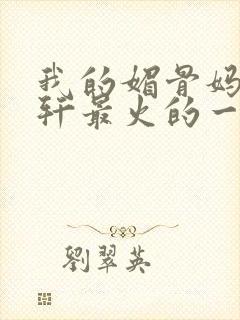 我的媚骨妈
轩最火的一
劉翠英